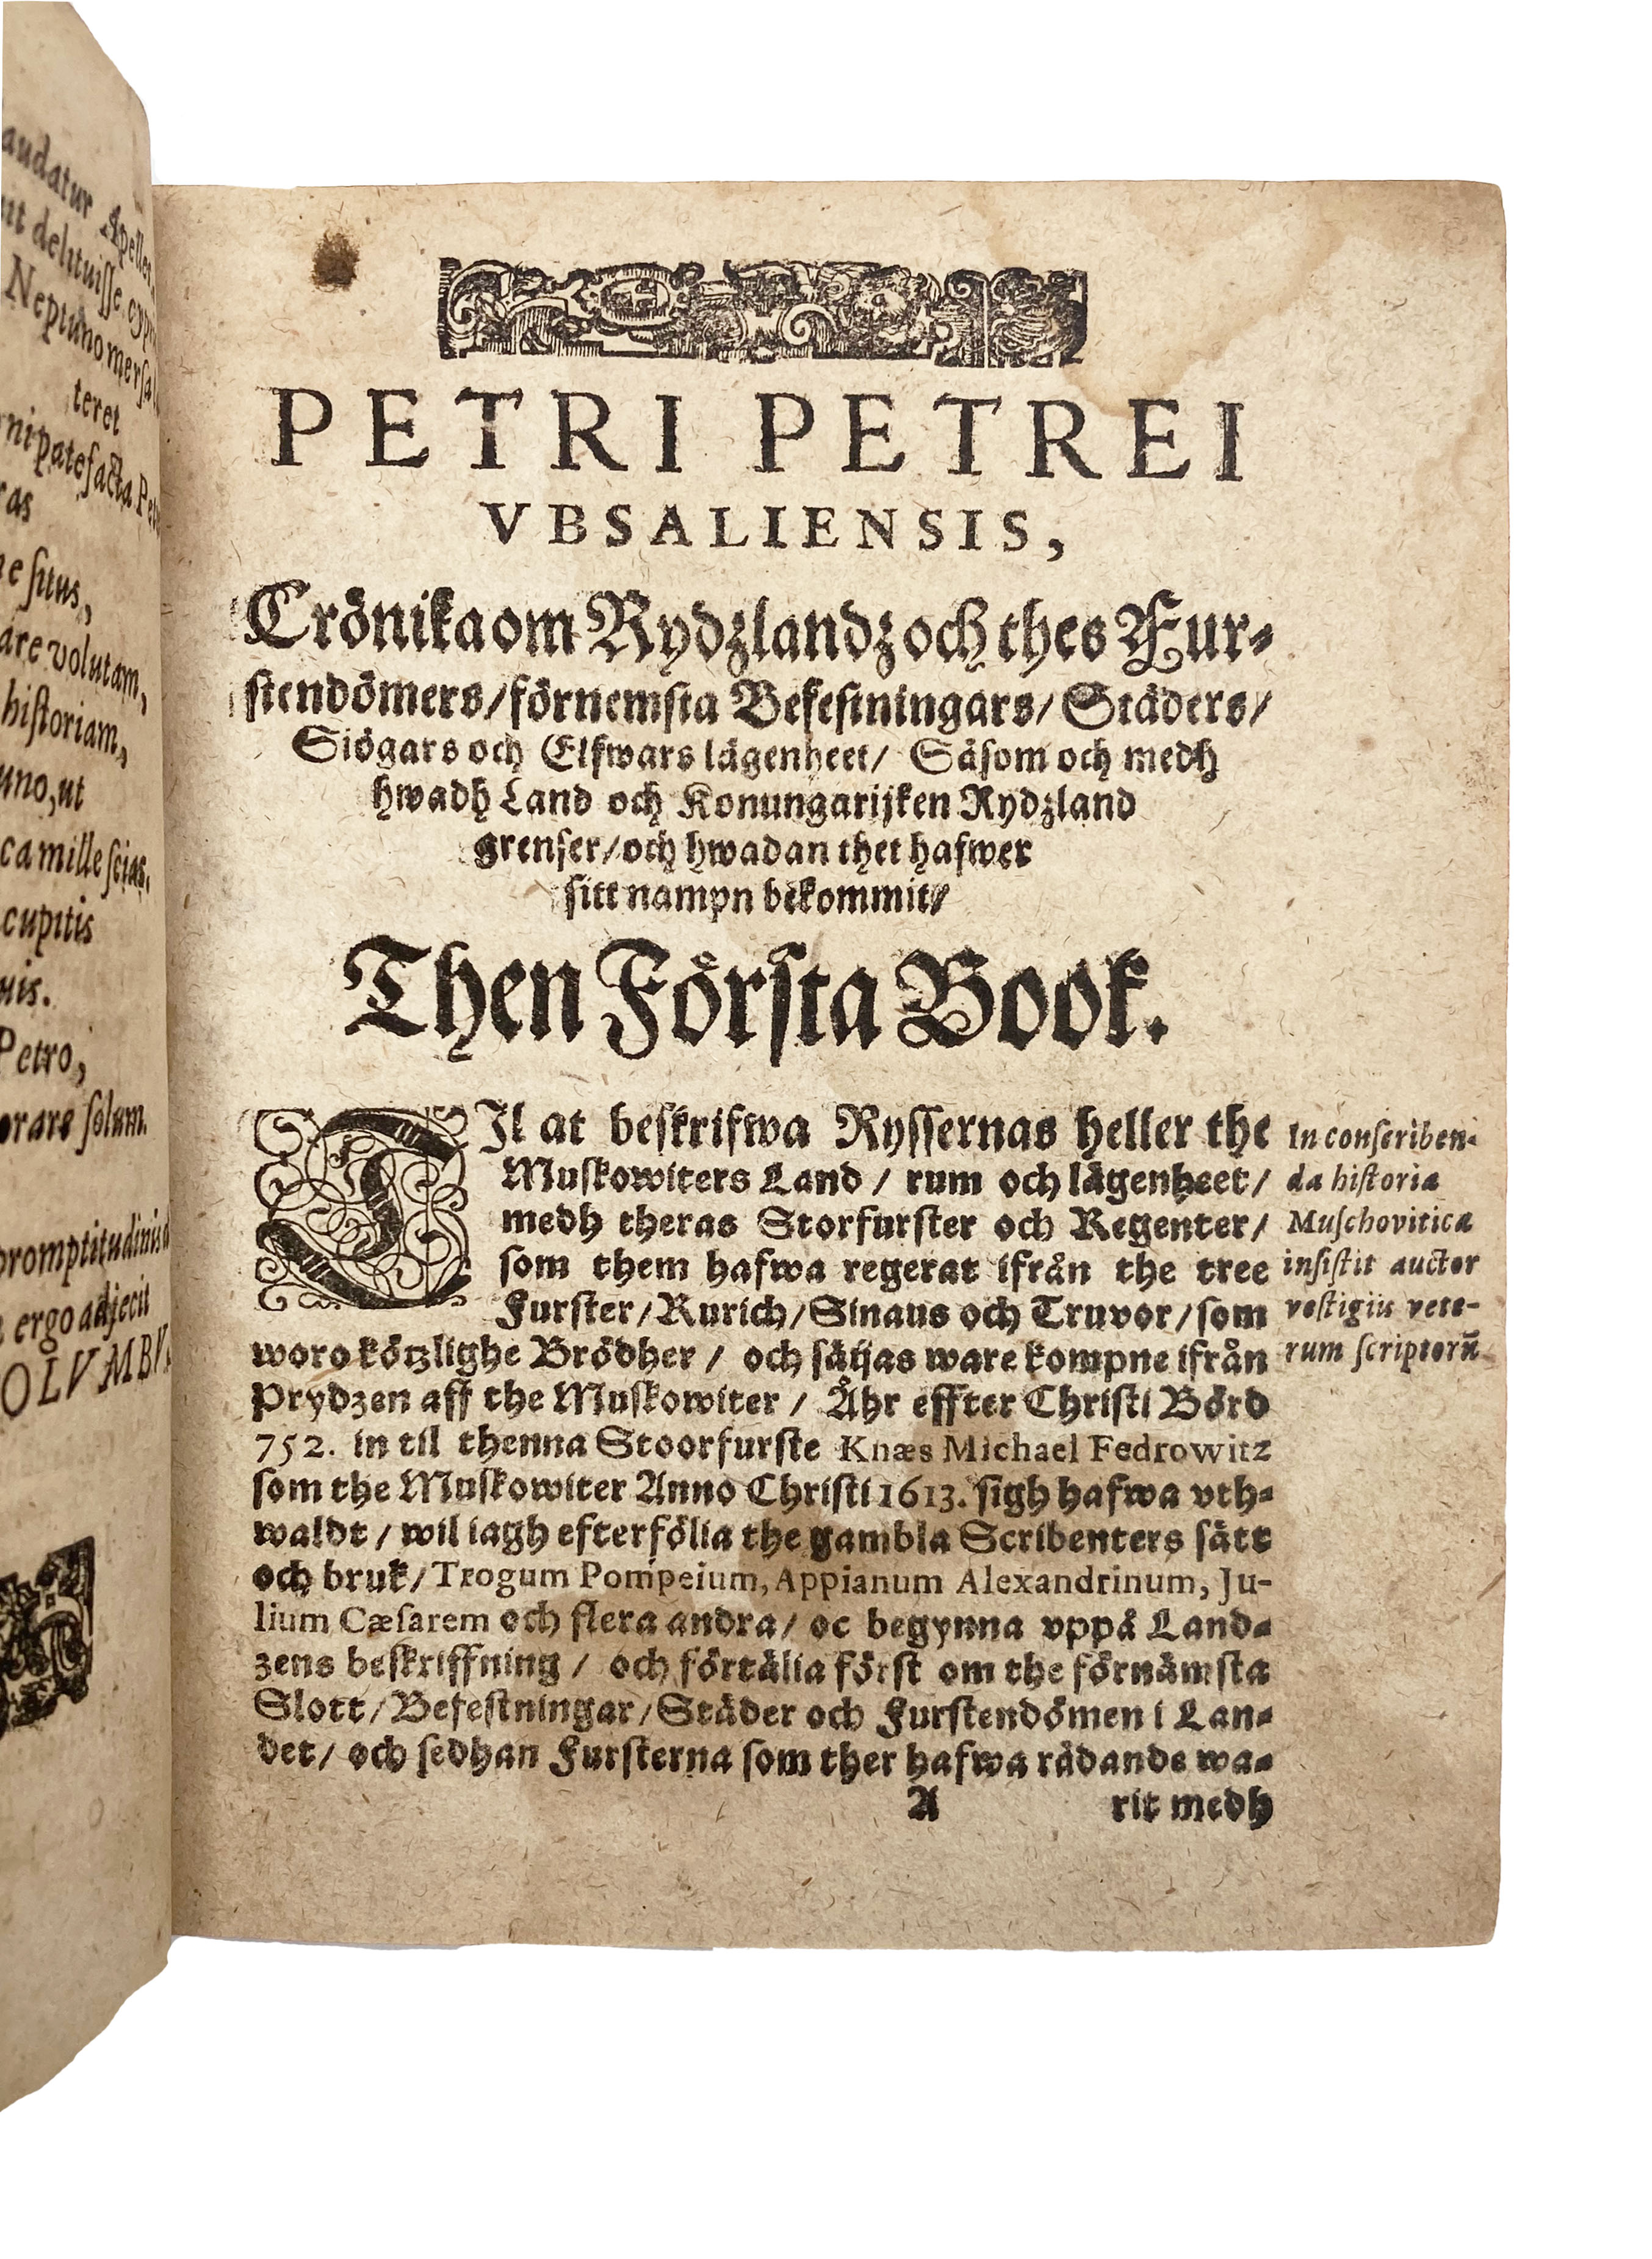 audatur Apelles
ut delituiſſe
Neptuno
teret
patefacta
as
ſitus,
volutam,
hiſtoriam,
uno, ut
mille ſcias,
cupitis
uis.
Petro,
ſolum.
promptitudinis
ergo adjecit
OLVMBV
PETRI PETREI
VBSALIENSIS,
Crönika om Rydzlandz och thes Fur-
ſtendömers/ förnemſta Befeſtningars/ Städers/
Siögars och Elfwars lägenheet/ Såſom och medh
hwadh Land och Konungarijken Rydzland
grenſer/ och hwadan thet hafwer
ſitt nampn bekommit/
Then Förſta Book.
TIl at beſkrifwa Ryſſernas heller the
Muſkowiters Land / rum och lägenheet/
medh theras Storfurſter och Regenter/
som them hafwa regerat ifrån the tree
Furſter/ Rurich/ Sinaus och Truvor/ ſom
woro kötzlighe Brödher / och ſäijas ware kompne ifrån
Prydzen aff the Muſkowiter / Åhr effter Chriſti Börd
752. in til thenna Stoorfurſte Knæs Michael Fedrowitz
ſom the Muſkowiter Anno Chriſti 1613. ſigh hafwa vth-
waldt / wil iagh efterfölia the gambla Scribenters ſätt
och bruk/ Trogum Pompeium, Appianum Alexandrinum, Ju-
lium Cæſarem och flera andra/ oc begynna vppå Land-
zens beſkriffning / och förtälia förſt om the förnämſta
Slott/ Befeſtningar/ Städer och Furſtendömen i Lan-
det/ och ſedhan Furſterna ſom ther hafwa rådande wa-
A rit medh
In conſcriben-
da hiſtoria
Muſchovitica
inſiſtit auctor
veſtigiis vete-
rum ſcriptorū